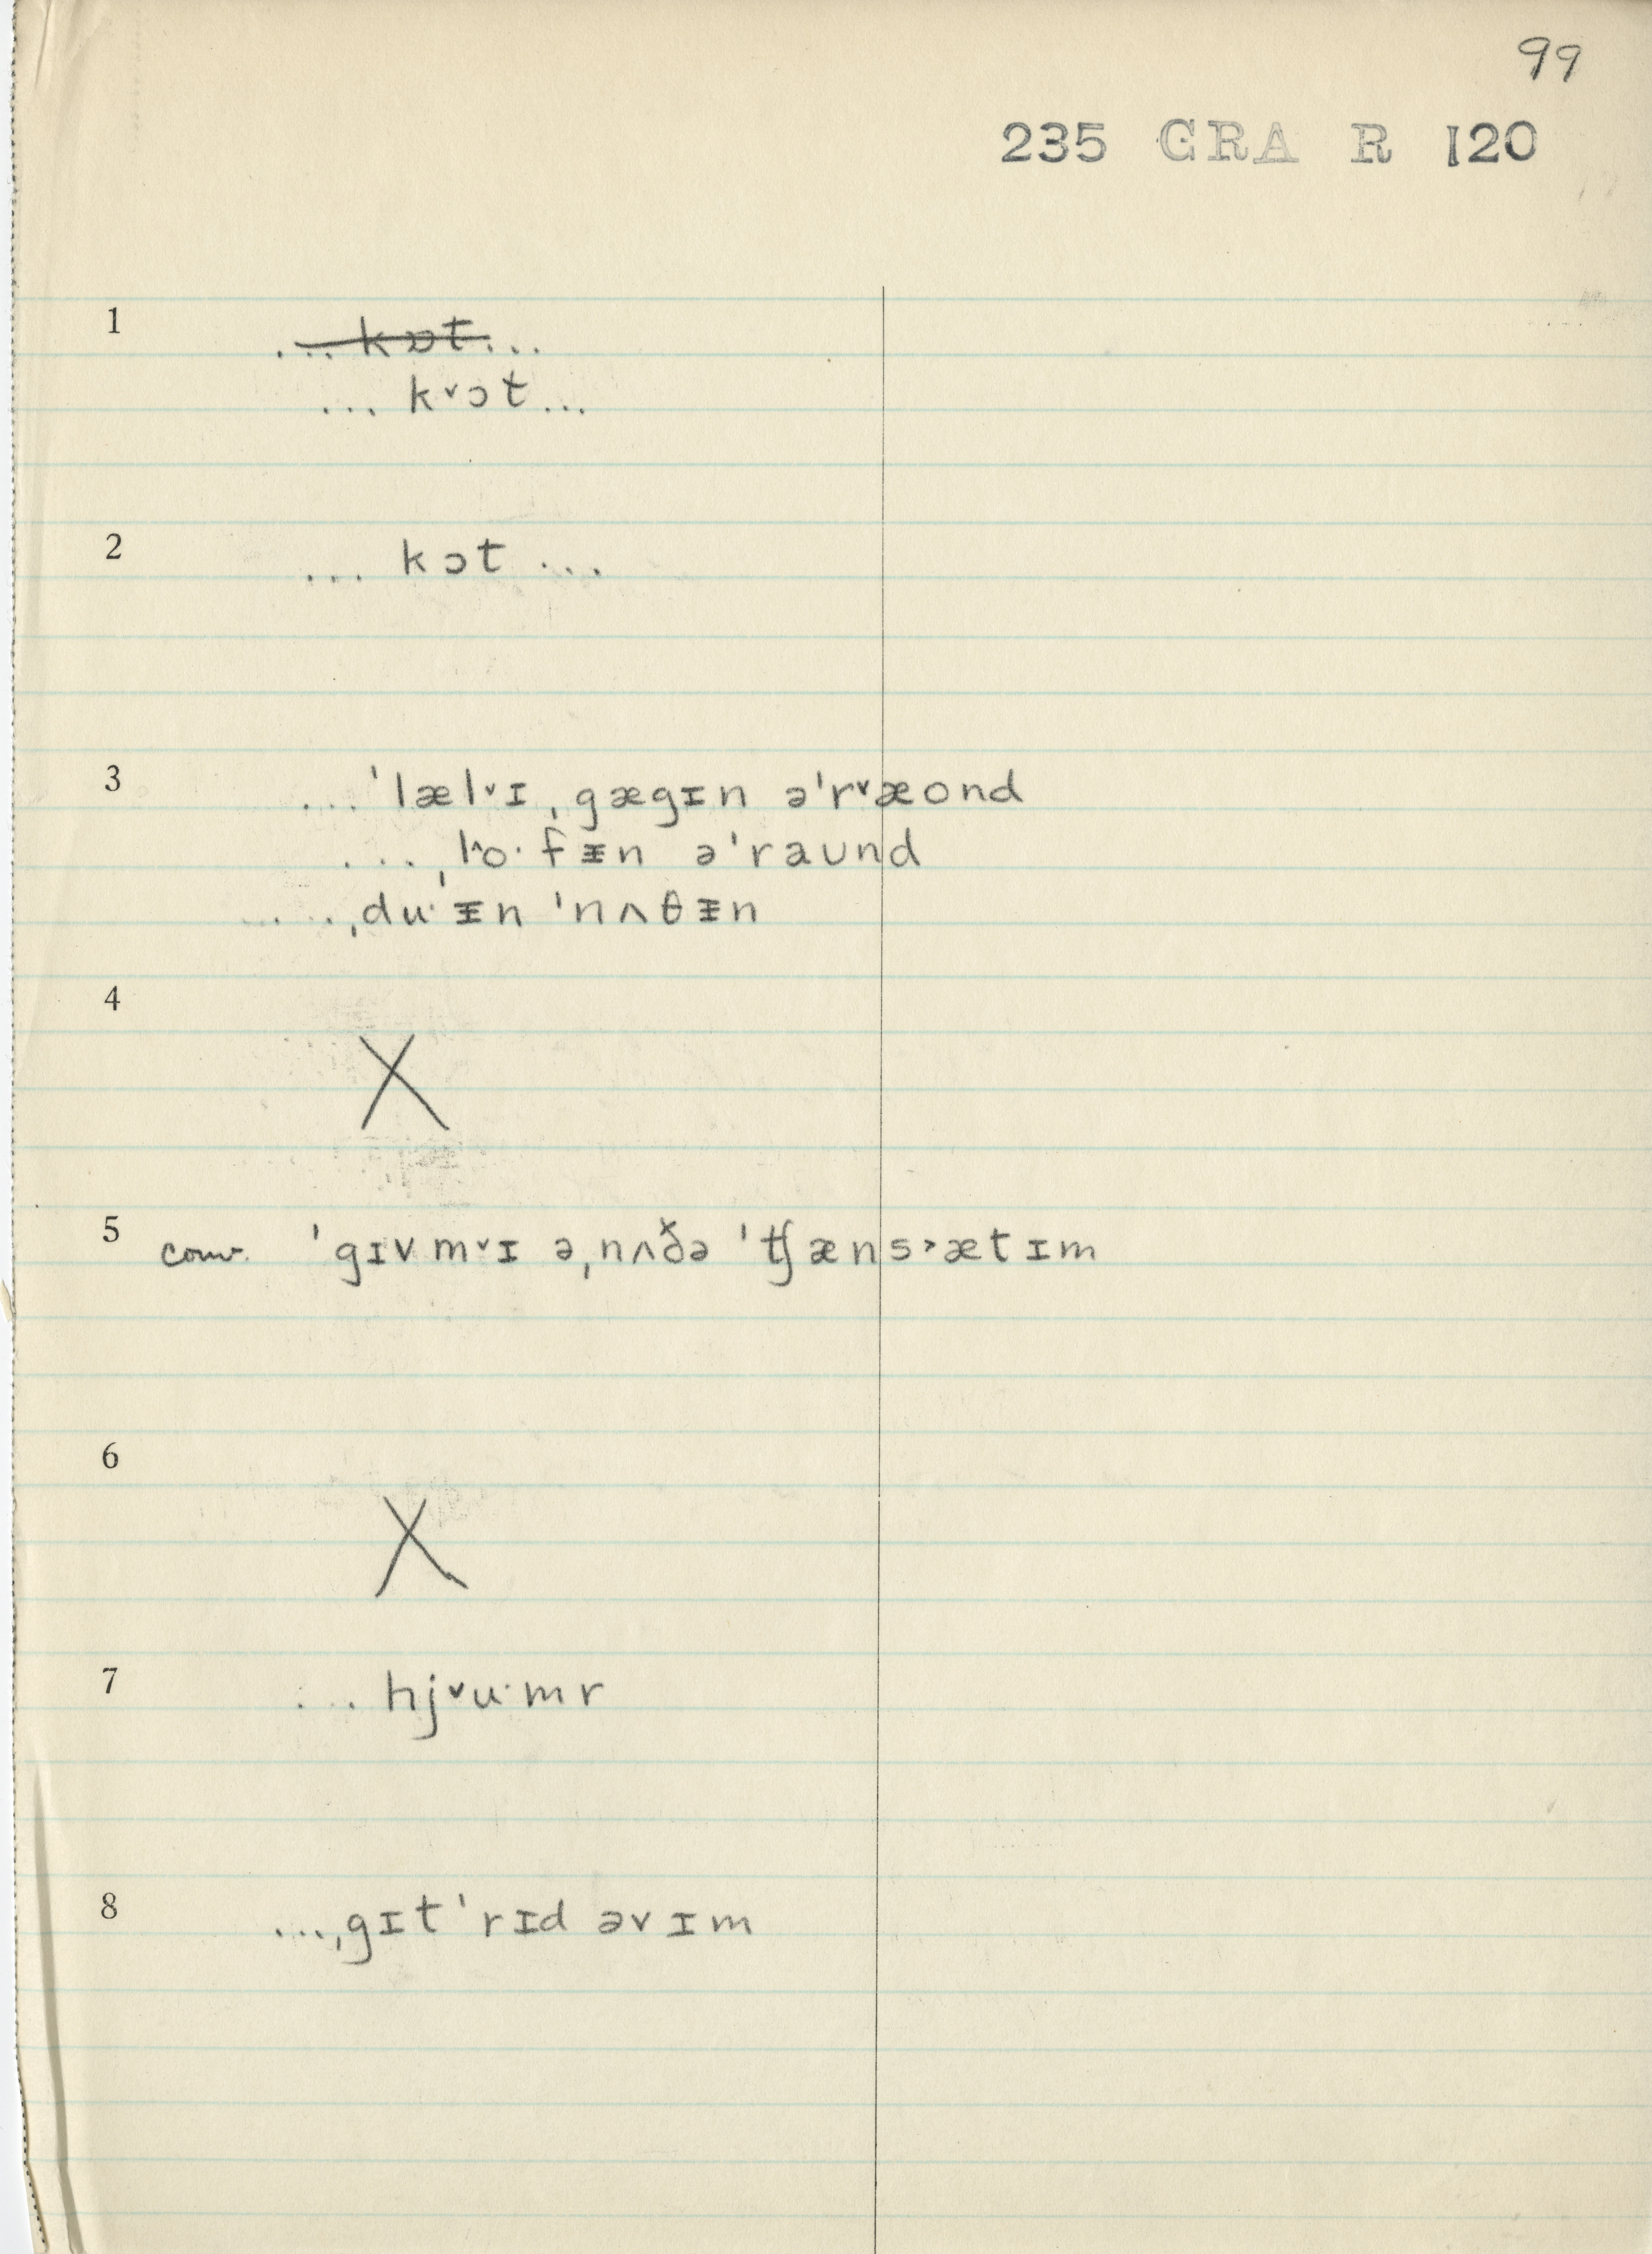 99
235 GRA R 120
1 ... kɒt ...
... k˅ɔt ...
2 ... kɔt ...
3 ... ˈlæl˅ɪ ˌgægɪn əˈr˅æond
... ˌl^o·fᵻn əˈraʊnd
... ˌdu·ᵻn ˈnʌθᵻn
4 X
5 conv. ˈgɪv m˅ɪ əˌnʌðə ˈʧæns˃ætɪm
6 X
7 ... hj˅u·mr
8 ... ˌgɪt ˈrɪd əvɪm